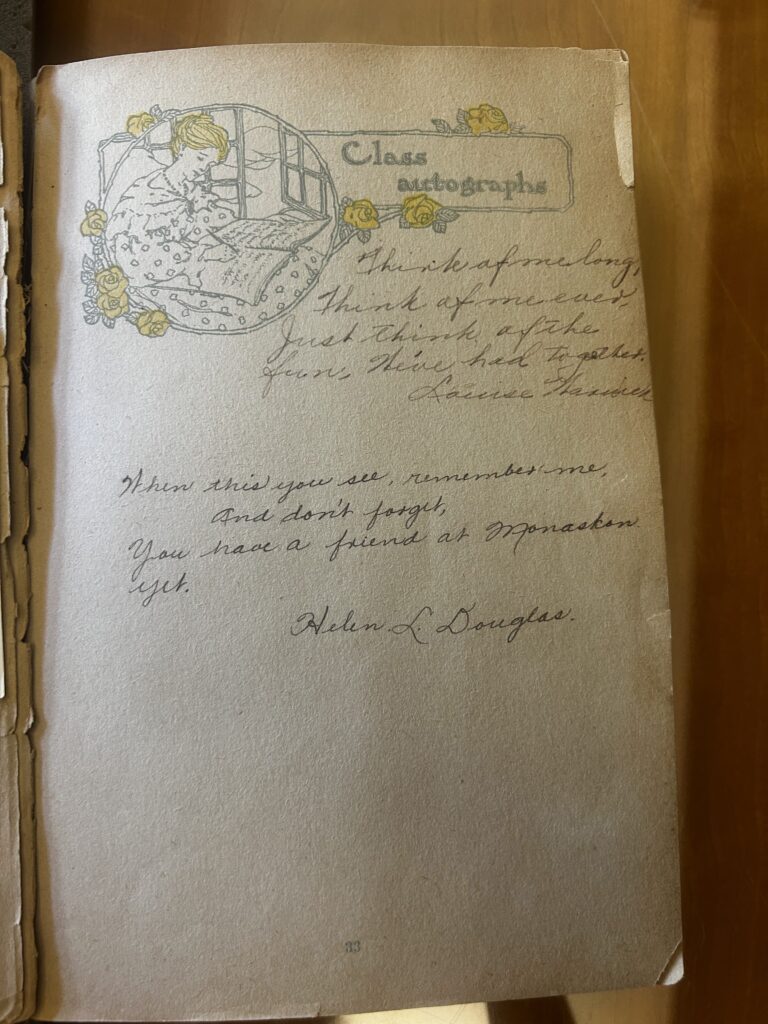 Class
autographs
Think of me long,
Think of me ever,
Just think of the
fun, We've had together.
Louise
When this you see, remember me,
And don't forget,
You have a friend at Monaskon
yet.
Helen L. Douglas.
33